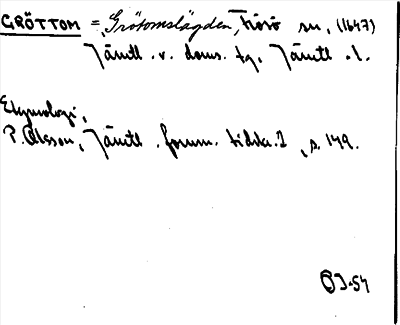 GRÖTTOM = "Grötomslägden", Frösö sn, (1647)
Jämtl. v. doms. tg, Jämtl. l.
Etymologi,
P. Olsson, Jämtl. fornm. tidskr. I, s. 149.
OJ-54